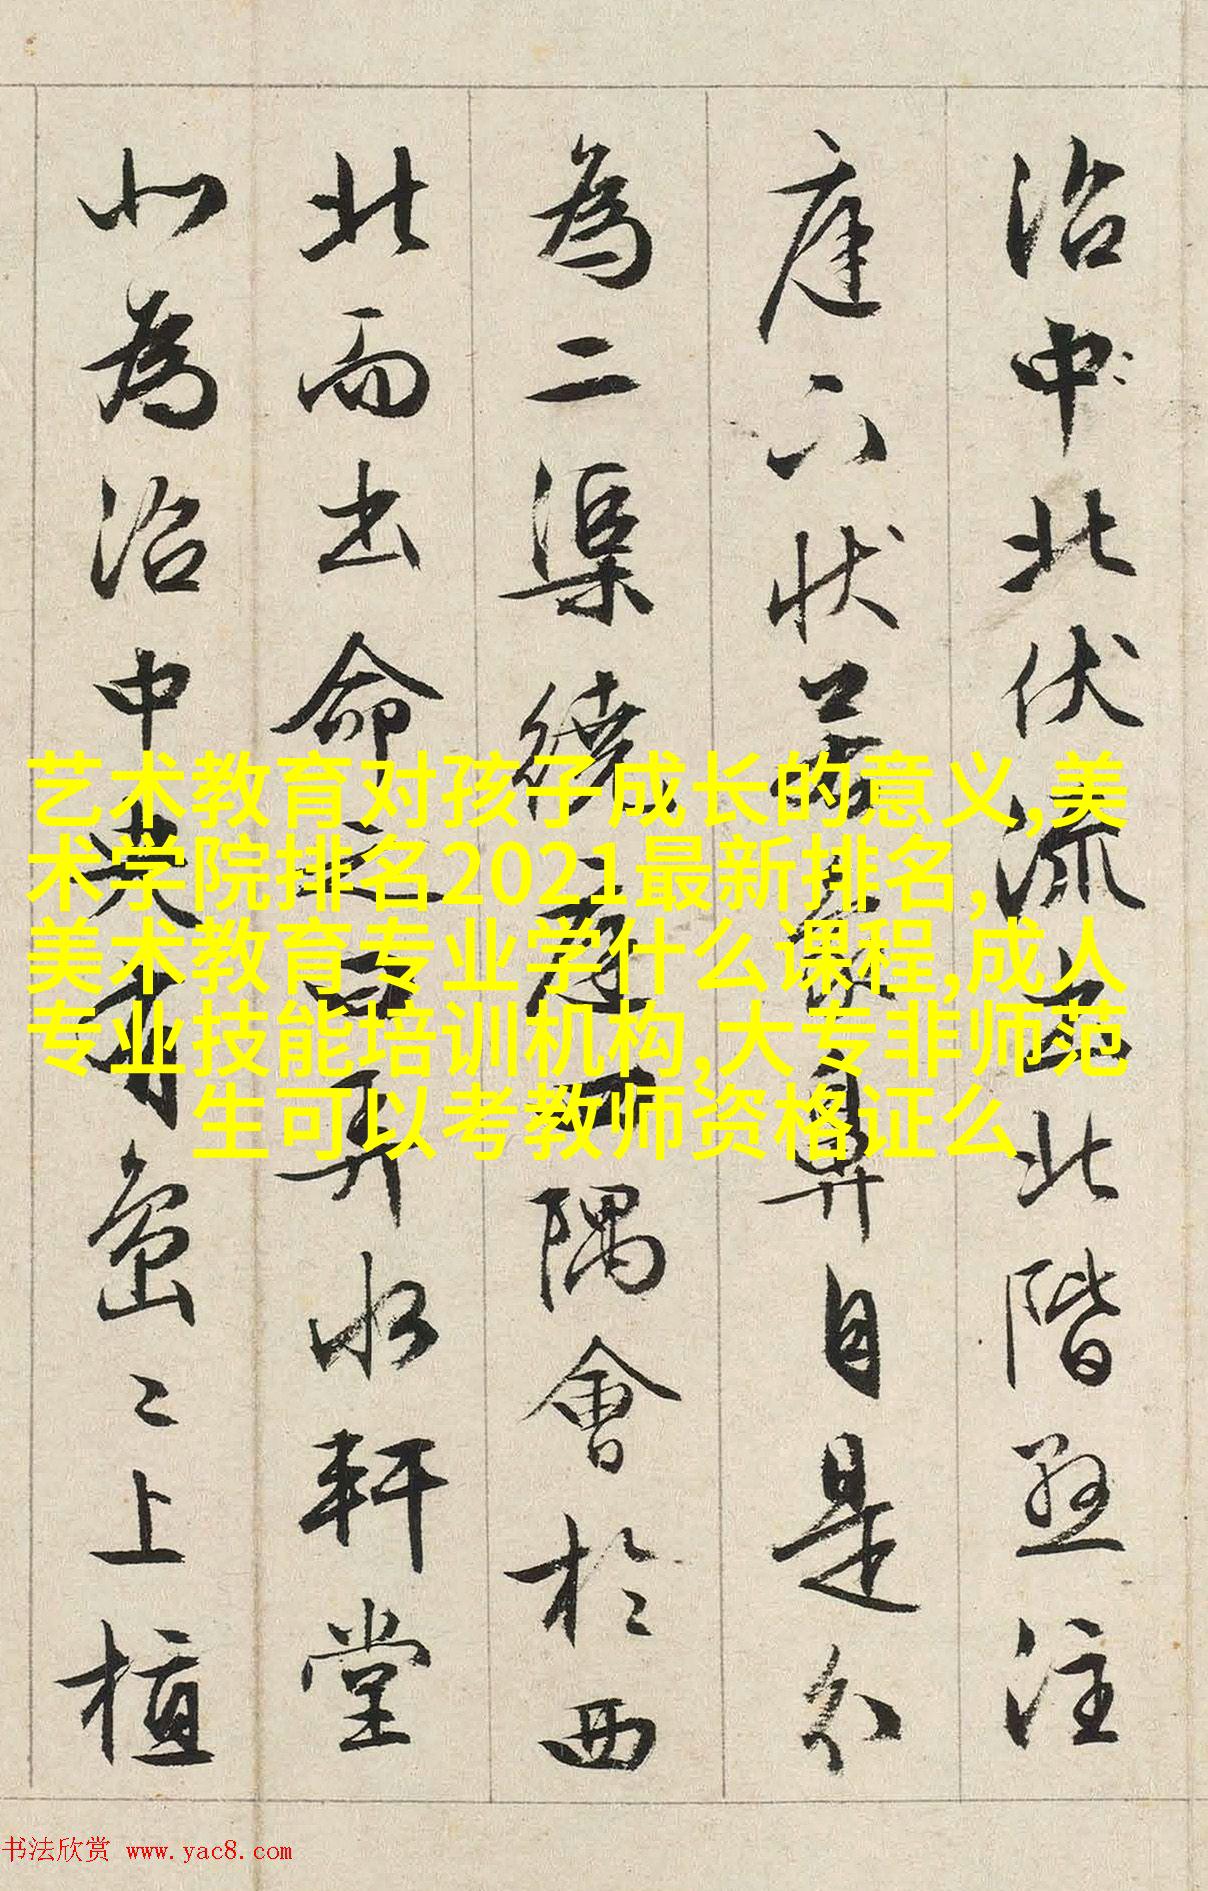 沼中北伏流出北階懸注
庭下狀若象鼻自是分
為二渠繞庭四隅會於西
北而出命之曰弄水軒堂
北為沼中央有島〻上植
艺术教育对孩子成长的意义,美
术学院排名2021最新排名,
美术教育专业学什么课程,成人
专业技能培训机构,大专非师范
生可以考教师资格证么
书法欣赏 www.yac8.com